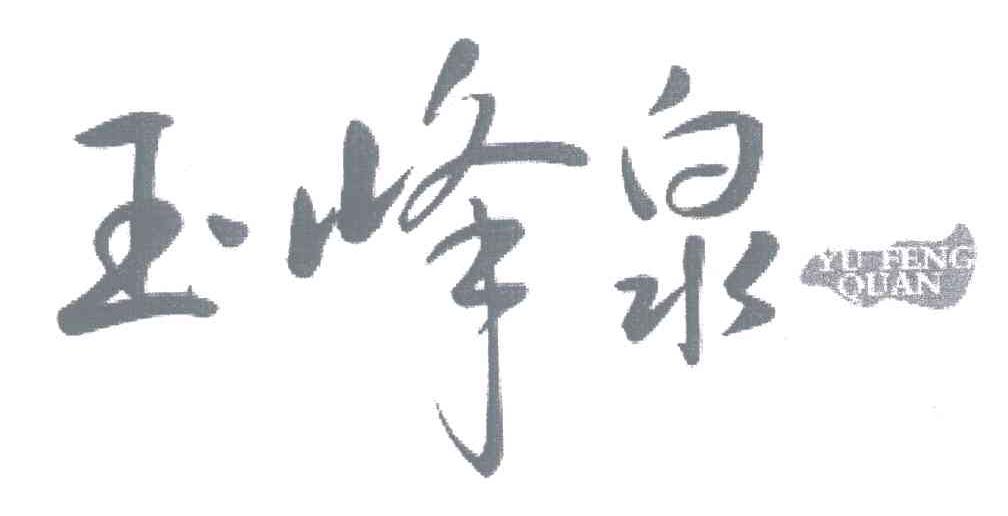 玉峰泉
YU FENG
QUAN